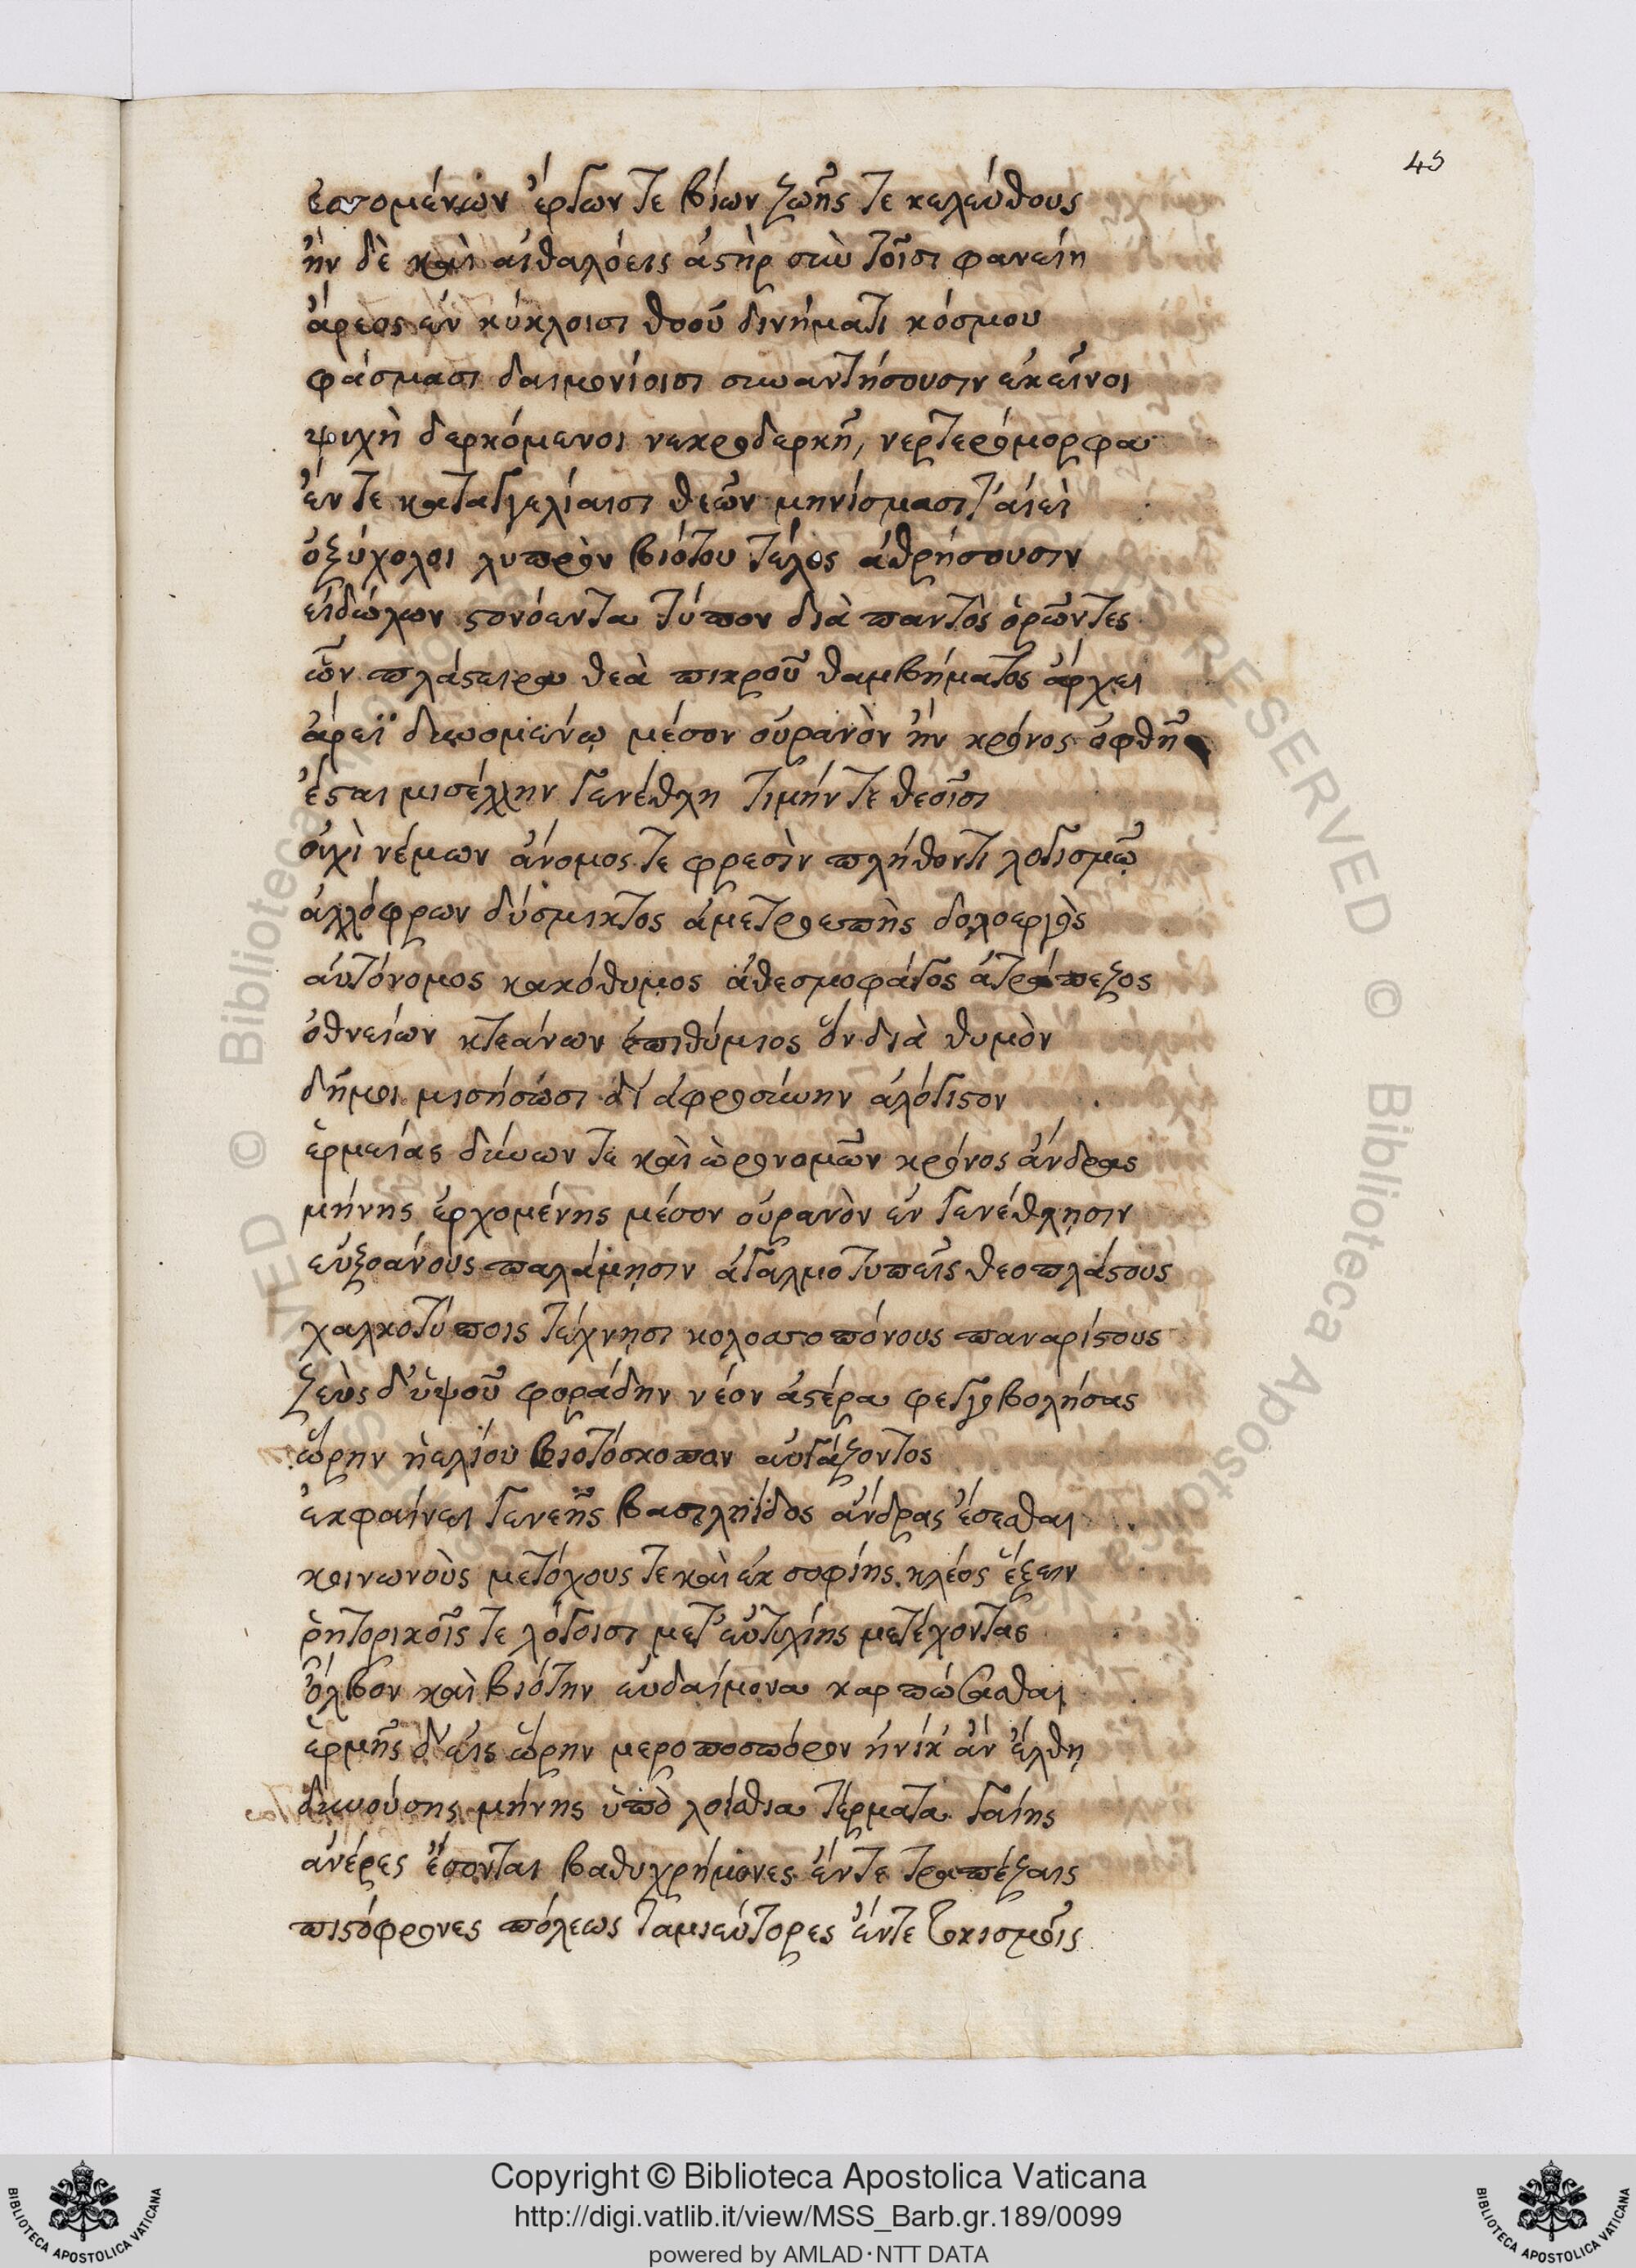 45
ἐσσομένων ἔργων τε βίων ζωῆς τε κελεύθους
ἢν δὲ καὶ αἰθαλόεις ἀστὴρ σὺν τοῖσι φανείη
ἄρεος ἐν κύκλοισι θοοῦ δινήματι κόσμου
φάσμασι δαιμονίοισι συναντήσουσιν ἐκεῖνοι
ψυχὴ δερκόμενοι νεκροδερκῆ, νερτερόμορφα
ἔν τε καταγγελίαισι θεῶν μηνίσμασι τ' αἰεὶ
ὀξύχολοι λυπρὸν βιότου τέλος ἀθρήσουσιν
εἰδώλων στονόεντα τύπον διὰ παντὸς ὁρῶντες
ὧν πλάστειρα θεὰ πικροῦ θαμβήματος ἄρχει
ἄρεϊ δυνομένῳ μέσον οὐρανὸν ἢν κρόνος ὀφθῆ
ἔσται μισέλλην γενέθλη τιμήν τε θεοῖσι
οὐχὶ νέμων ἄνομος τε φρεσὶν πλήθοντι λογισμῷ
ἀλλόφρων δύσμικτος ἀμετροεπὴς δολοεργὸς
αὐτόνομος κακόθυμος ἀθεσμοφάγος ἀτράπεζος
ὀθνείων κτεάνων ἐπιθύμιος ὃν διὰ θυμὸν
δῆμοι μισήσωσι δι' ἀφροσύνην ἀλόγιστον
ἑρμείας δύνων τε καὶ ὡρονομῶν κρόνος ἄνδρας
μήνης ἐρχομένης μέσον οὐρανὸν ἐν γενέθλησιν
εὐξοάνους παλάμησιν ἀγαλμοτυπεῖς θεοπλάστους
χαλκοτύποις τέχνησι κολοσσοπόνους παναρίστους
ζεὺς δ' ὑψοῦ φοράδην νέον ἀστέρα φεγγοβολήσας
ὥρην ἠελίου βιοτόσκοπον αὐγάζοντος
ἐκφαίνει γενεῆς βασιληίδος ἄνδρας ἔσεσθαι
κοινωνοὺς μετόχους τε καὶ ἐκ σοφίης κλέος ἕξειν
ῥητορικοῖς τε λόγοισι μετ' εὐτυχίης μετέχοντας
ὄλβον καὶ βιότην εὐδαίμονα καρπώσασθαι
ἑρμῆς δ' εἰς ὥρην μεροποσπόρον ἡνίκ' ἂν ἔλθῃ
δυνούσης μήνης ὑπὸ λοίσθια τέρματα γαίης
ἀνέρες ἔσονται βαθυχρήμονες ἔν τε τραπέζαις
πιστόφρονες πόλεως ταμιεύτορες ἔν τε τοκισμοῖς
Copyright © Biblioteca Apostolica Vaticana
http://digi.vatlib.it/view/MSS_Barb.gr.189/0099
powered by AMLAD · NTT DATA
BIBLIOTECA APOSTOLICA VATICANA
BIBLIOTECA APOSTOLICA VATICANA